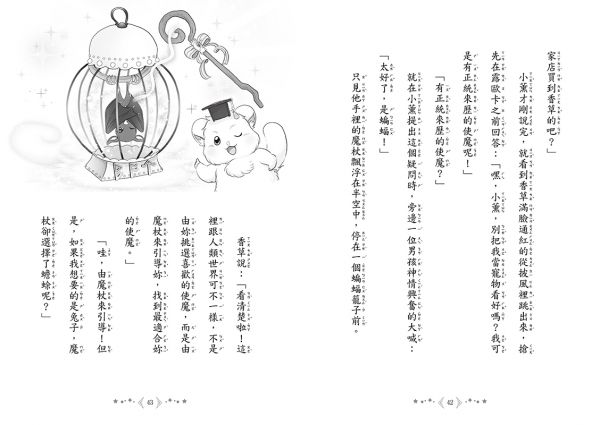 家店買到香草的吧？
小薰才剛說完，就看到香草滿臉通紅的從披風裡跳出來，搶
先在露歐卡之前回答：「嘿，小薰，別把我當寵物看好嗎？我可
是有正統來歷的使魔呢！」
「有正統來歷的使魔？」
就在小薰提出這個疑問時，旁邊一位男孩神情興奮的大喊：
「太好了，是蝙蝠！」
只見他手裡的魔杖飄浮在半空中，停在一個蝙蝠籠子前。
42
香草說：「看清楚啦！這
裡跟人類世界可不一樣，不是
由妳挑選喜歡的使魔，而是由
魔杖來引導妳，找到最適合妳
的使魔。」
「哇，由魔杖來引導！但
是，如果我想要的是兔子，魔
杖卻選擇了蟾蜍呢？」
43